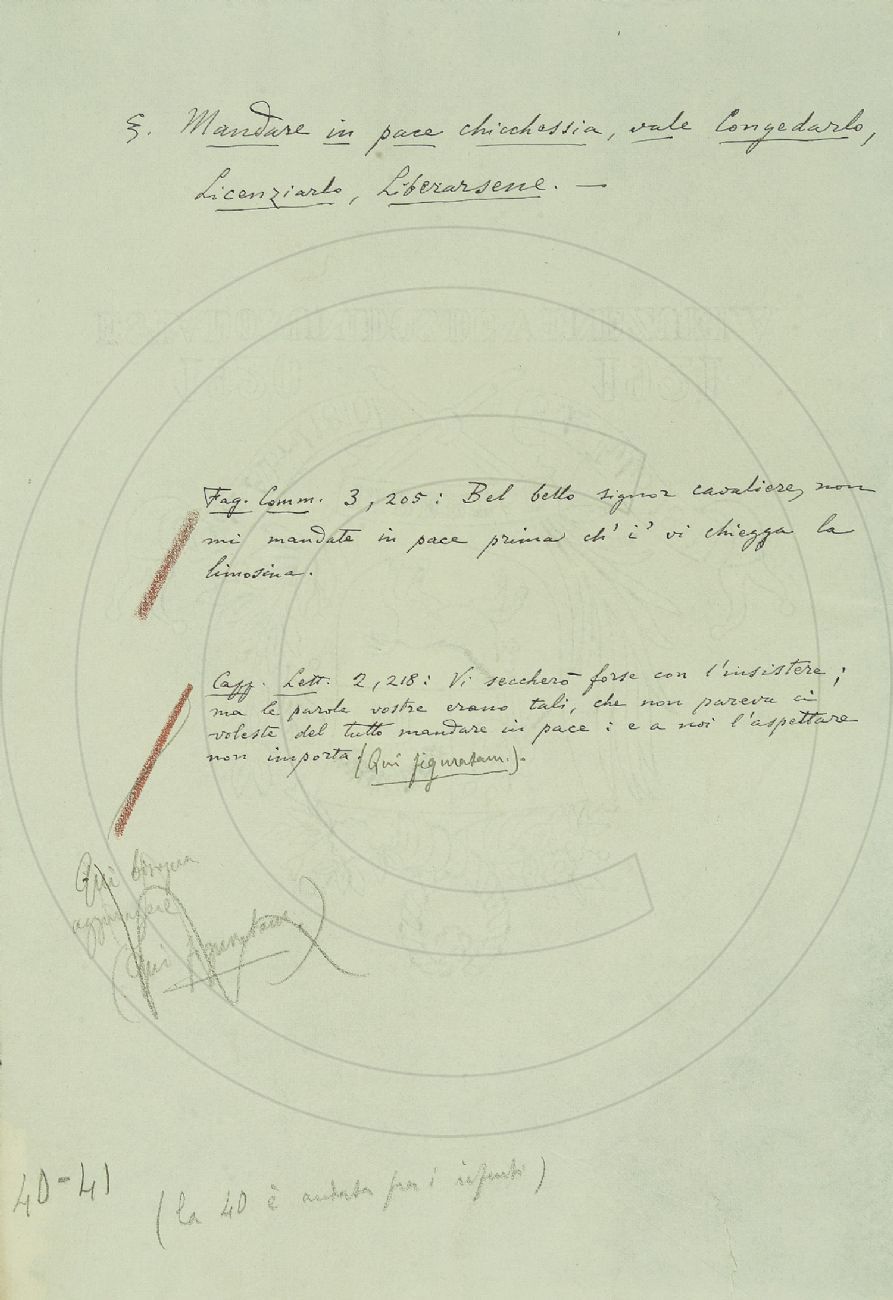 §. Mandare in pace chicchessia, vale Congedarlo,
Licenziarlo, Liberarsene. —
Fag. Comm. 3, 205: Bel bello signor cavaliere, non
mi mandate in pace prima ch' i' vi chiegga la
limosina.
Capp. Lett. 2, 218: Vi seccherò forse con l'insistere;
ma le parole vostre erano tali, che non pareva ci
voleste del tutto mandare in pace: e a noi l'aspettare
non importa. (Qui figuratam.).
Qui bisogna
aggiungere
(Qui figuratam.)
40-41
(la 40 è andata fra i rifiuti)